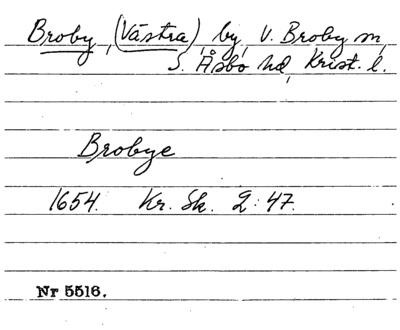 Broby, (Västra), by, V. Broby sn,
S. Åsbo hd, Krist. l.
Brobye
1654. Kr. Sk. 2:47.
Nr 5516.